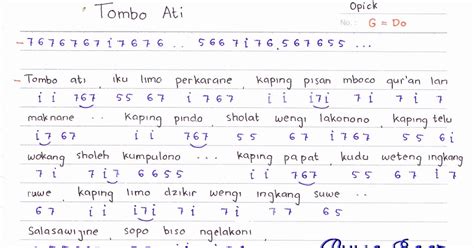 Tombo Ati
Opick
No.: G = Do
- 7676767i7676 ... 5667i76,567655 ...
- Tombo ati , iku limo perkarane , kaping pisan mboco qur'an lan
i i 767 55 67 i 767 i i i7i 7 i 7 i 7
maknane .. kaping pindo , sholat wengi lakonono , kaping telu
i7 67 i i 767 55 67 i767 55 67
wokang sholeh kumpulono ... kaping papat , kudu weteng ingkang
7i 7i 767 i i 767 55 67 6 67 i i
ruwe , kaping limo dzikir wengi ingkang suwe ..
67 i i i7i 7i 7i 7 67
Salasawijine , sopo biso ngelakoni